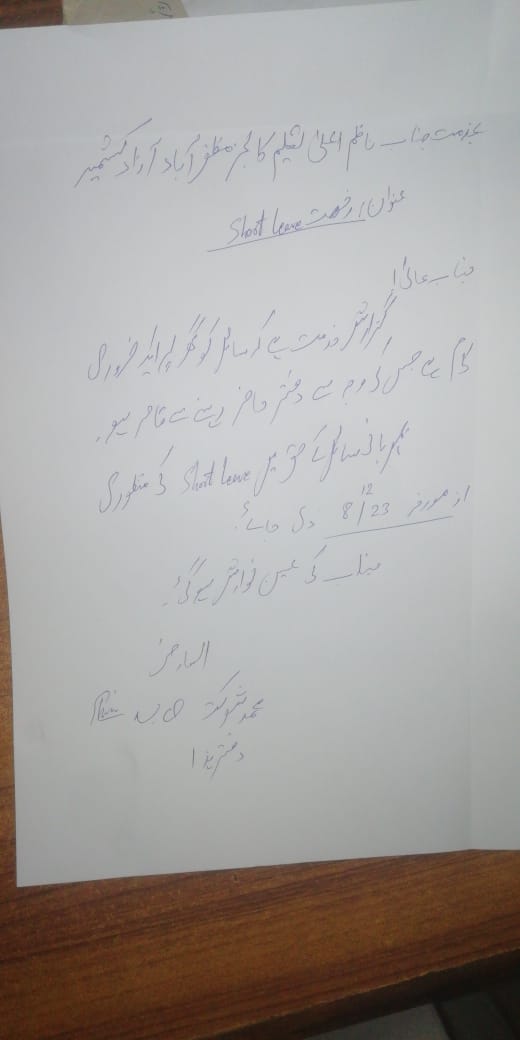 بخدمت جناب ناظم اعلیٰ تعلیم کالجز مظفرآباد آزاد کشمیر
عنوان: رخصت Short leave
جناب عالی!
گزارش خدمت ہے کہ سائل کو گھر پر ایک ضروری
کام ہے جس کی وجہ سے دفتر حاضر رہنے سے قاصر ہوں۔
مہربانی سائل کے حق میں Short leave کی منظوری
از مورخہ 8/12/23 دی جائے۔
جناب کی عین نوازش ہوگی۔
العارض
محمد شوکت
دفتر ہذا